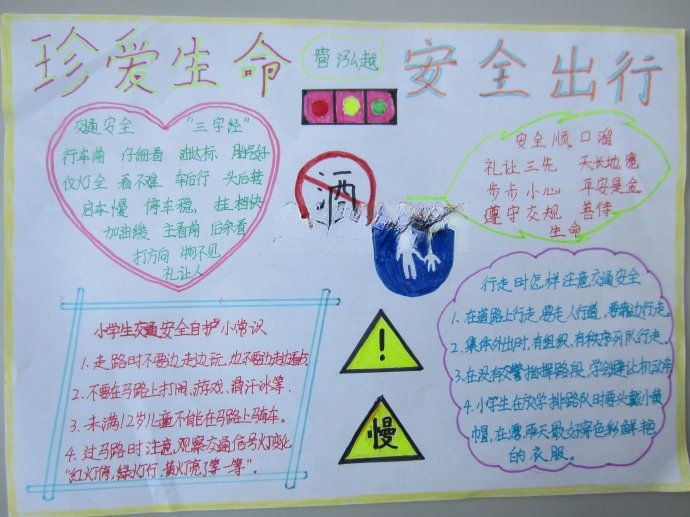 珍爱生命 管泓越 安全出行
交通安全 "三字经"
行车前 仔细看 油达标 胎完好
仪灯全 看不难 车后行 头后转
启车慢 停车稳 挂挡快
加油缓 主看前 后余看
打方向 物不见
礼让人
酒
安全顺口溜
礼让三先 天长地宽
步步小心 平安是金
遵守交规 善待
生命
小学生交通安全自护小常识
1. 走路时不要边走边玩,也不要边走边看书
2. 不要在马路上打闹、游戏、滑汗冰等.
3. 未满12岁儿童不能在马路上骑车。
4. 过马路时注意观察交通信号灯变化
"红灯停,绿灯行,黄灯亮了等一等"。
慢
行走时怎样注意交通安全
1. 在道路上行走,要走人行道,要靠边行走。
2. 集体外出时,有组织、有秩序列队行走。
3. 在没有交警指挥路段,学会避让机动车
4. 小学生在放学排路队时要头戴小黄
帽,在雾雨天最好穿色彩鲜艳
的衣服。